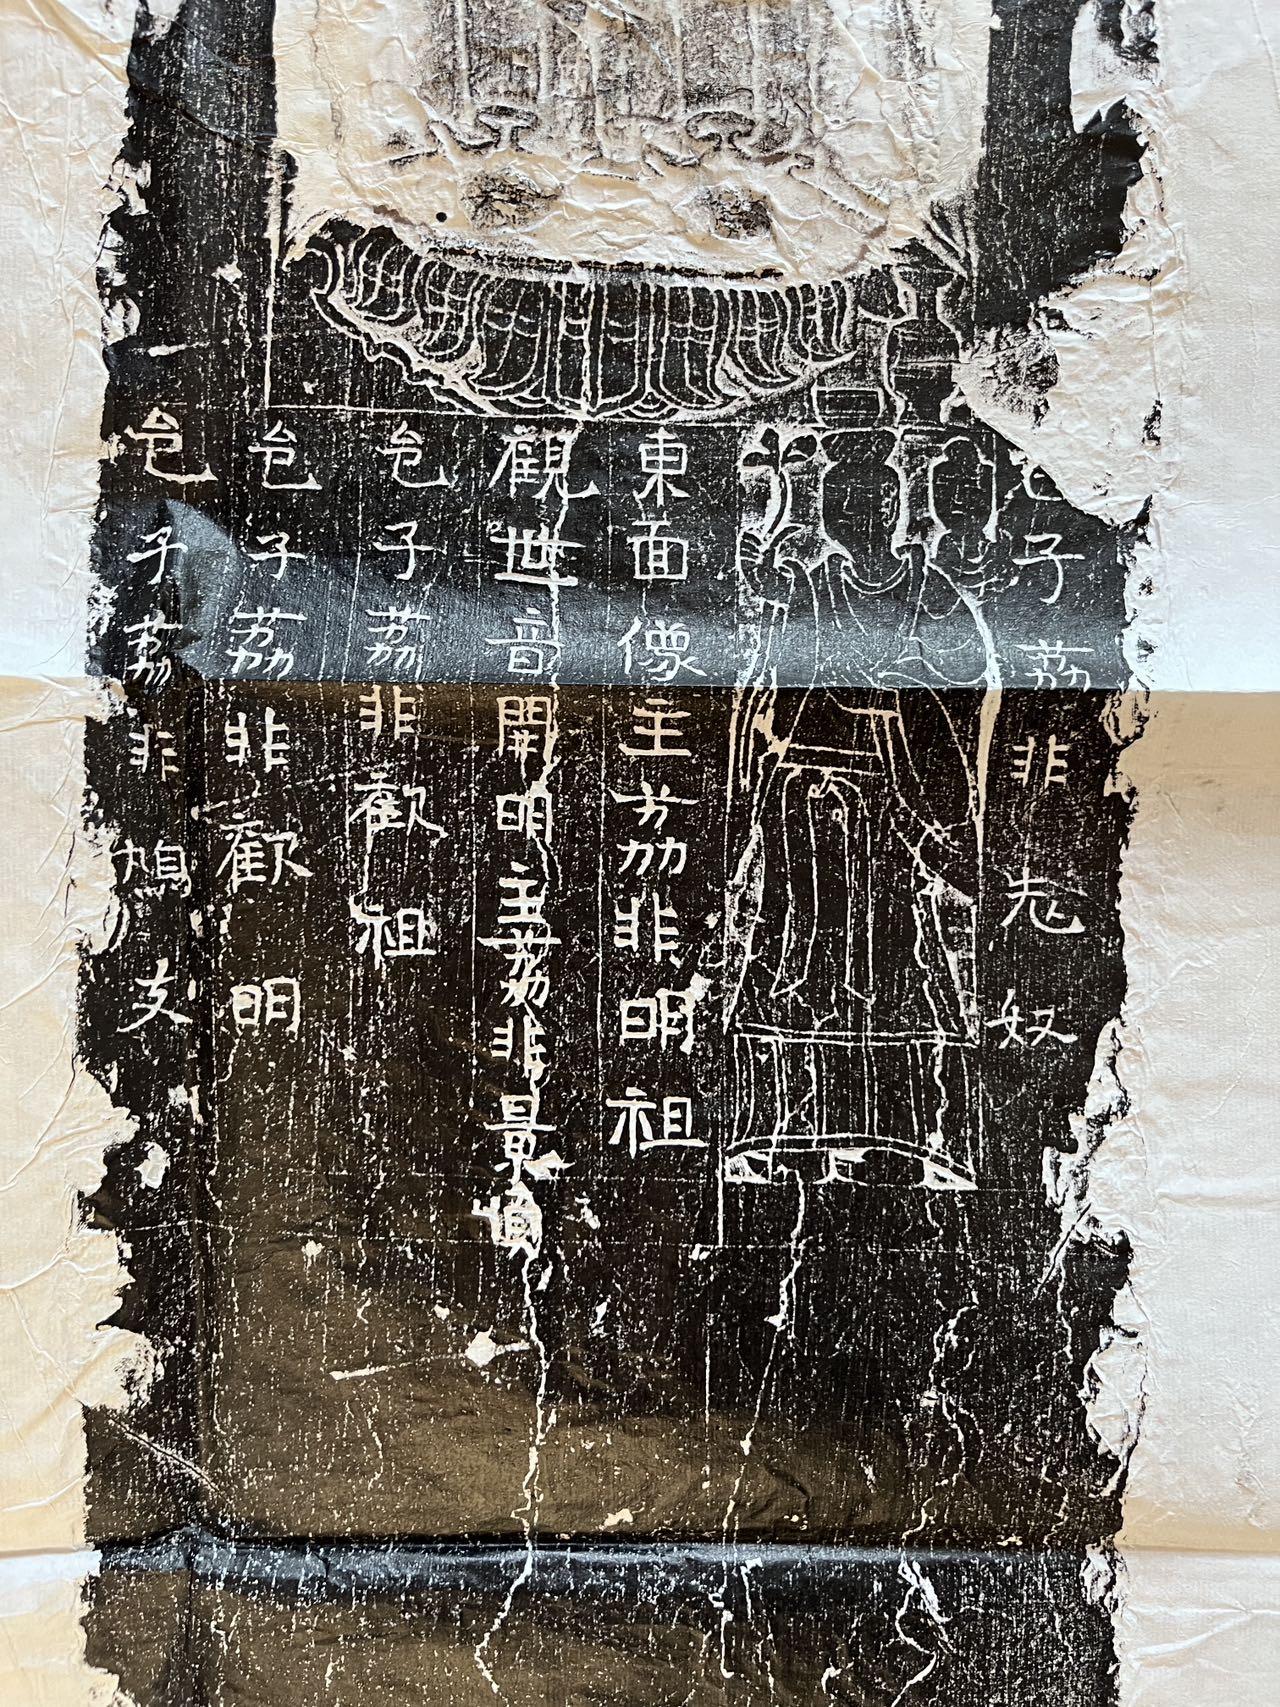 邑子荔非老奴
東面像主荔非明祖
觀世音開明主荔非景
邑子荔非歡祖
邑子荔非歡明
邑子荔非鴆支